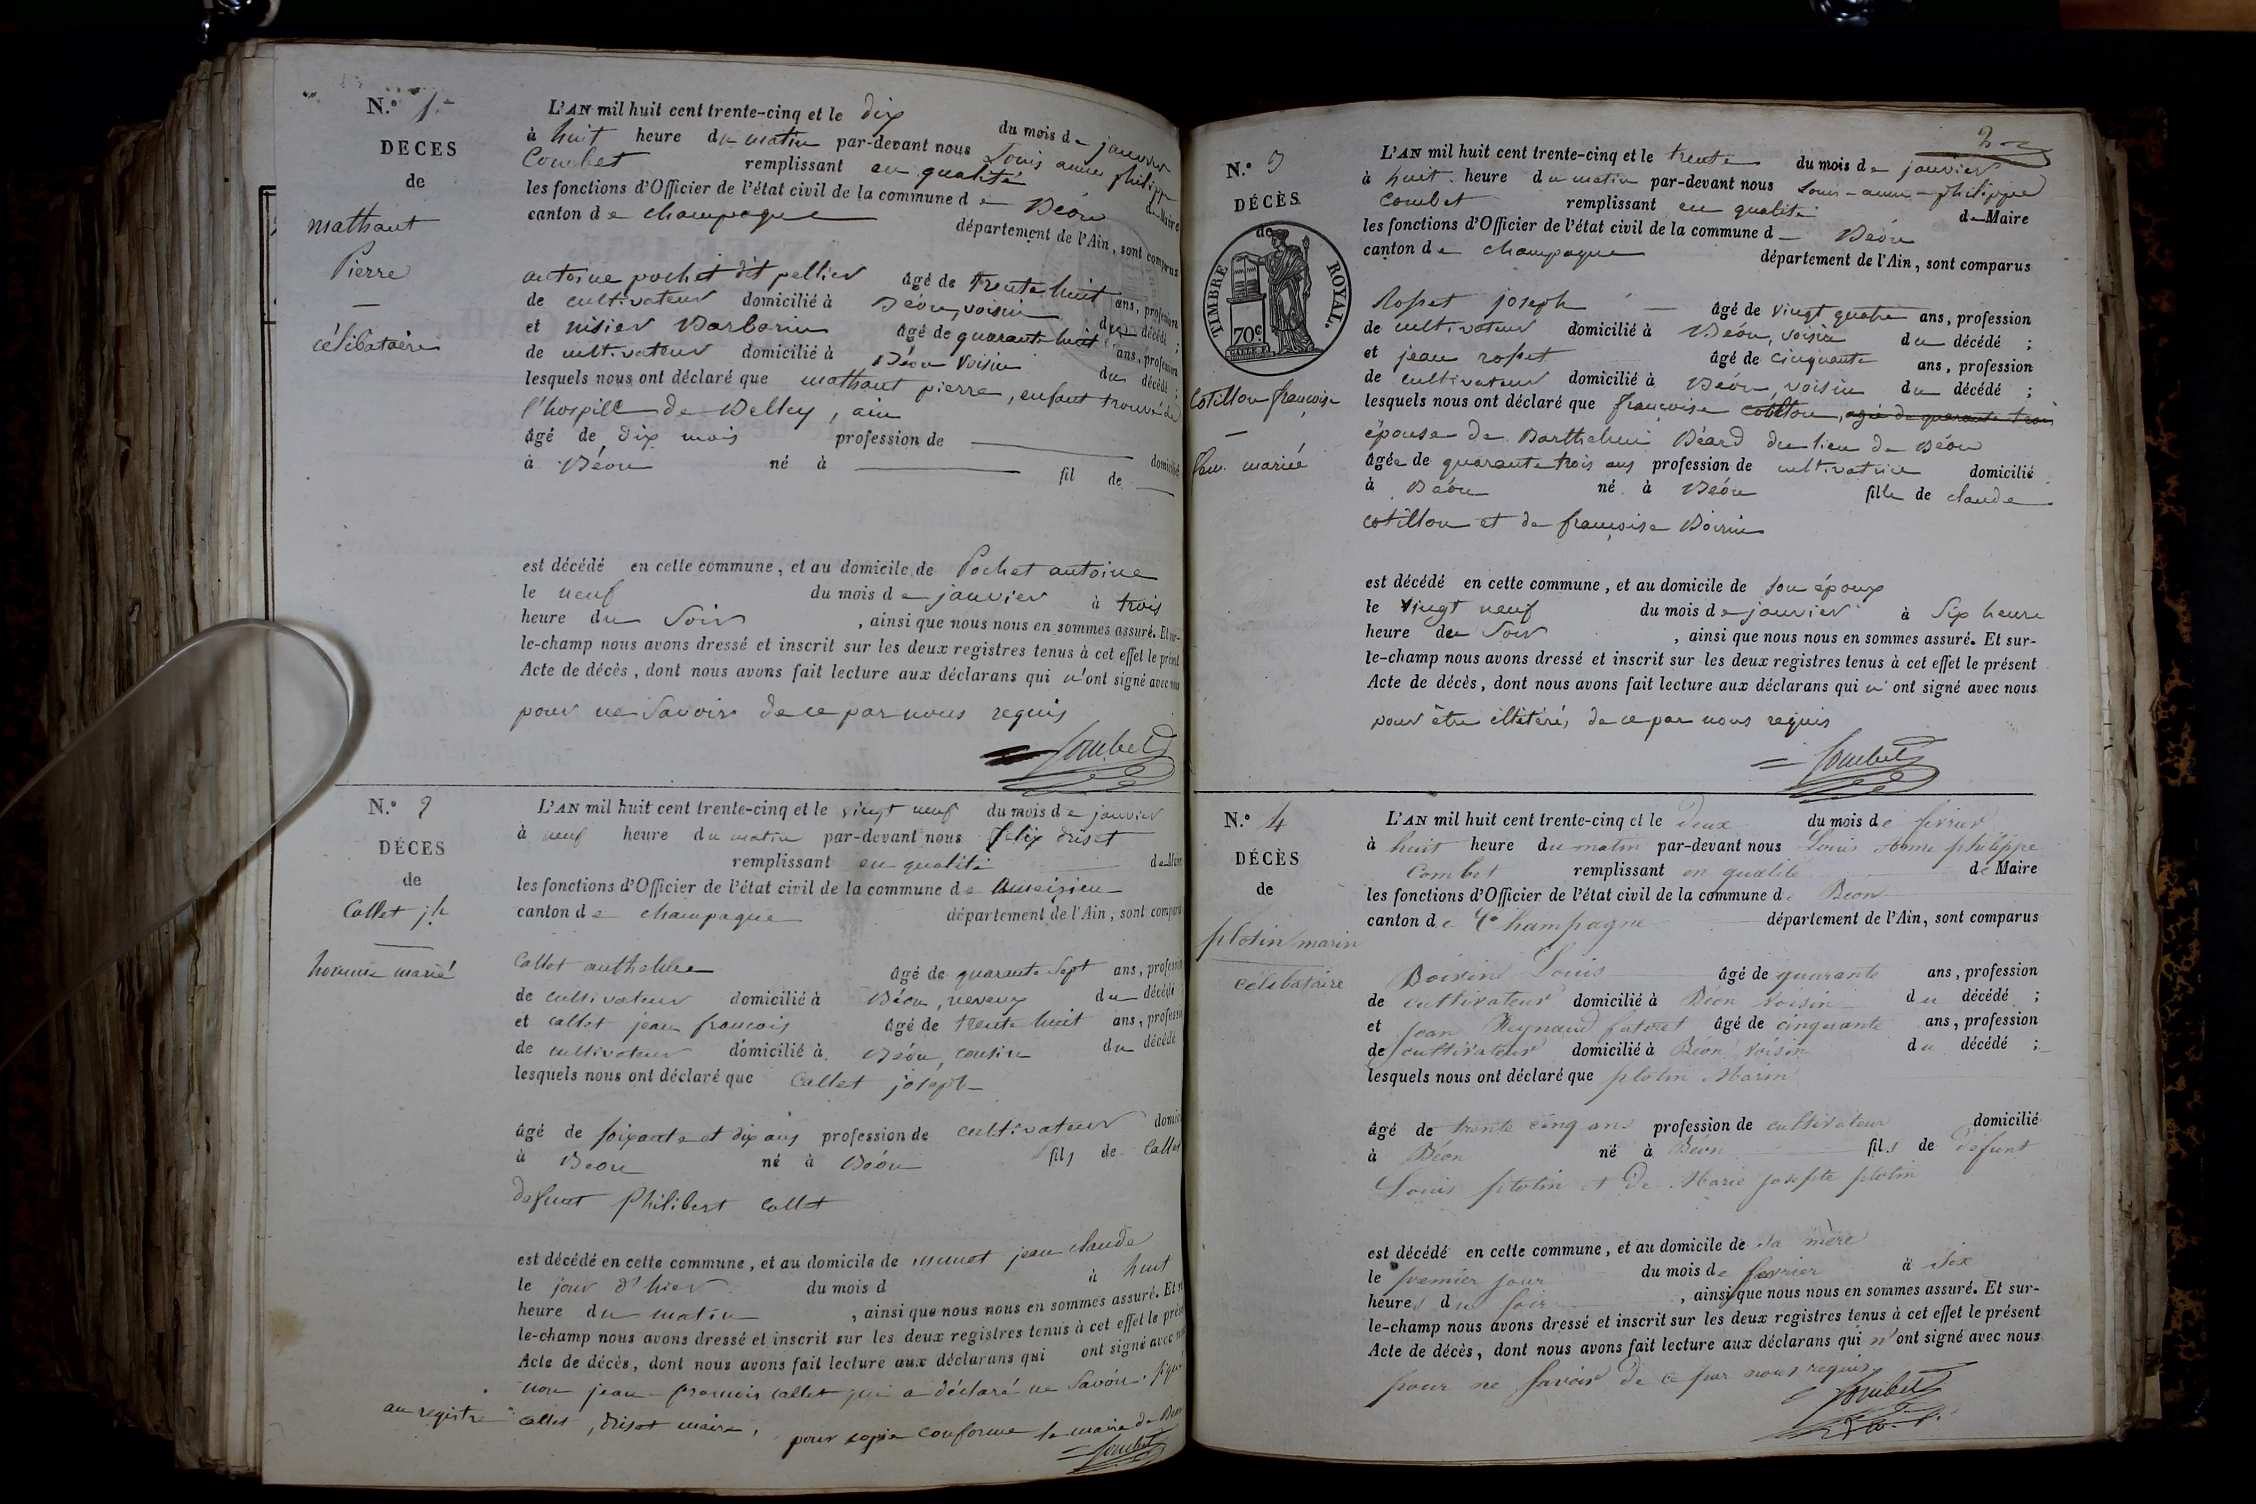 N.o 1.
DECES
de
mathaut
Pierre
célibataire
L'AN mil huit cent trente-cinq et le dix du mois de janvier
à huit heure du matin par-devant nous Louis anne philippe
Combet remplissant en qualité de Maire
les fonctions d'Officier de l'état civil de la commune de Béon
canton de champagne département de l'Ain, sont comparus
antoine pochet dit pellier âgé de trente huit ans, profession
de cultivateur domicilié à Béon, voisin du décédé ;
et nisier Barbarin âgé de quarante huit ans, profession
de cultivateur domicilié à Béon voisin du décédé ;
lesquels nous ont déclaré que mathaut pierre, enfant trouvé de
l'hospice de Belley, ain
âgé de dix mois profession de domicilié
à Béon né à fil de
est décédé en cette commune, et au domicile de Pochet antoine
le neuf du mois de janvier à trois
heure du Soir , ainsi que nous nous en sommes assuré. Et sur-
le-champ nous avons dressé et inscrit sur les deux registres tenus à cet effet le présent
Acte de décès, dont nous avons fait lecture aux déclarans qui n'ont signé avec nous
pour ne Savoir de ce par nous requis
Combet
N.o 2
DÉCES
de
Callet jh
homme marié
L'AN mil huit cent trente-cinq et le vingt neuf du mois de janvier
à neuf heure du matin par-devant nous felix Driset
remplissant en qualité de Maire
les fonctions d'Officier de l'état civil de la commune de Ameizieu
canton de champagne département de l'Ain, sont comparus
Callet anthelme âgé de quarante Sept ans, profession
de cultivateur domicilié à Béon, neveux du décédé
et callet jean francois âgé de trente huit ans, profession
de cultivateur domicilié à Béon, cousin du décédé
lesquels nous ont déclaré que Callet joseph
âgé de soixante et dix ans profession de cultivateur domicilié
à Beon né à Béon fils de Callet
defunt Philibert Callet
est décédé en cette commune, et au domicile de jean claude
le jour d'hier du mois d à huit
heure du matin , ainsi que nous nous en sommes assuré. Et sur-
le-champ nous avons dressé et inscrit sur les deux registres tenus à cet effet le présent
Acte de décès, dont nous avons fait lecture aux déclarans qui ont signé avec nous
non jean-francois callet qui a déclaré ne Savoir. signé
au registre callet, Driset maire, pour copie conforme le maire de Béon
Combet
2
N.o 3
DÉCÈS
de
TIMBRE ROYAL.
70c
Cotillon françoise
fem. mariée
L'AN mil huit cent trente-cinq et le trente du mois de janvier
à huit heure du matin par-devant nous Louis-anne-philippe
Combet remplissant en qualité de Maire
les fonctions d'Officier de l'état civil de la commune d Béon
canton de champagne département de l'Ain, sont comparus
Rosset joseph âgé de vingt quatre ans, profession
de cultivateur domicilié à Béon, voisin du décédé ;
et jean rosset âgé de cinquante ans, profession
de cultivateur domicilié à Béon, voisin du décédé ;
lesquels nous ont déclaré que françoise cotillon, agée de quarante trois
épouse de Barthelmi Béard du lieu de Béon
âgée de quarante trois ans profession de cultivatrice domicilié
à Béon né à Béon fille de claude
cotillon et de françoise Boirin
est décédé en cette commune, et au domicile de son époux
le vingt neuf du mois de janvier à Six heure
heure du Soir , ainsi que nous nous en sommes assuré. Et sur-
le-champ nous avons dressé et inscrit sur les deux registres tenus à cet effet le présent
Acte de décès, dont nous avons fait lecture aux déclarans qui n'ont signé avec nous
pour être illétérés, de ce par nous requis
Combet
N.o 4
DÉCÈS
de
plotin marin
célibataire
L'AN mil huit cent trente-cinq et le deux du mois de février
à huit heure du matin par-devant nous Louis Anne philippe
Combet remplissant en qualité de Maire
les fonctions d'Officier de l'état civil de la commune de Beon
canton de Champagne département de l'Ain, sont comparus
Boirin Louis âgé de quarante ans, profession
de cultivateur domicilié à Béon voisin du décédé ;
et Jean Reynaud âgé de cinquante ans, profession
de cultivateur domicilié à Béon voisin du décédé ;
lesquels nous ont déclaré que plotin Marin
âgé de trente cinq ans profession de cultivateur domicilié
à Béon né à Béon fils de défunt
Louis plotin et de Marie josepte plotin
est décédé en cette commune, et au domicile de sa mère
le premier jour du mois de fevrier à six
heures du soir , ainsi que nous nous en sommes assuré. Et sur-
le-champ nous avons dressé et inscrit sur les deux registres tenus à cet effet le présent
Acte de décès, dont nous avons fait lecture aux déclarans qui n'ont signé avec nous
pour ne savoir de ce par nous requis
Combet